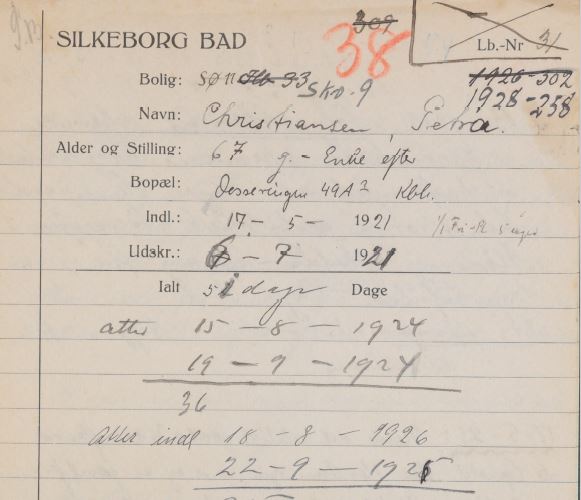 309
38
SILKEBORG BAD
Lb.-Nr 31
Bolig: SØN Hb 93 SKO-9
1926-302
1928-258
Navn: Christiansen, Petra.
Alder og Stilling: 67 g. - Enke efter
Bopæl: Dosseringen 49A² Kbh.
Indl.: 17 - 5 - 1921 1/1 Fri-Pl. 5 uger
Udskr.: 6 - 7 1921
Ialt 51 dage Dage
atter 15 - 8 - 1924
19 - 9 - 1924
36
atter indl 18 - 8 - 1926
22 - 9 - 1926